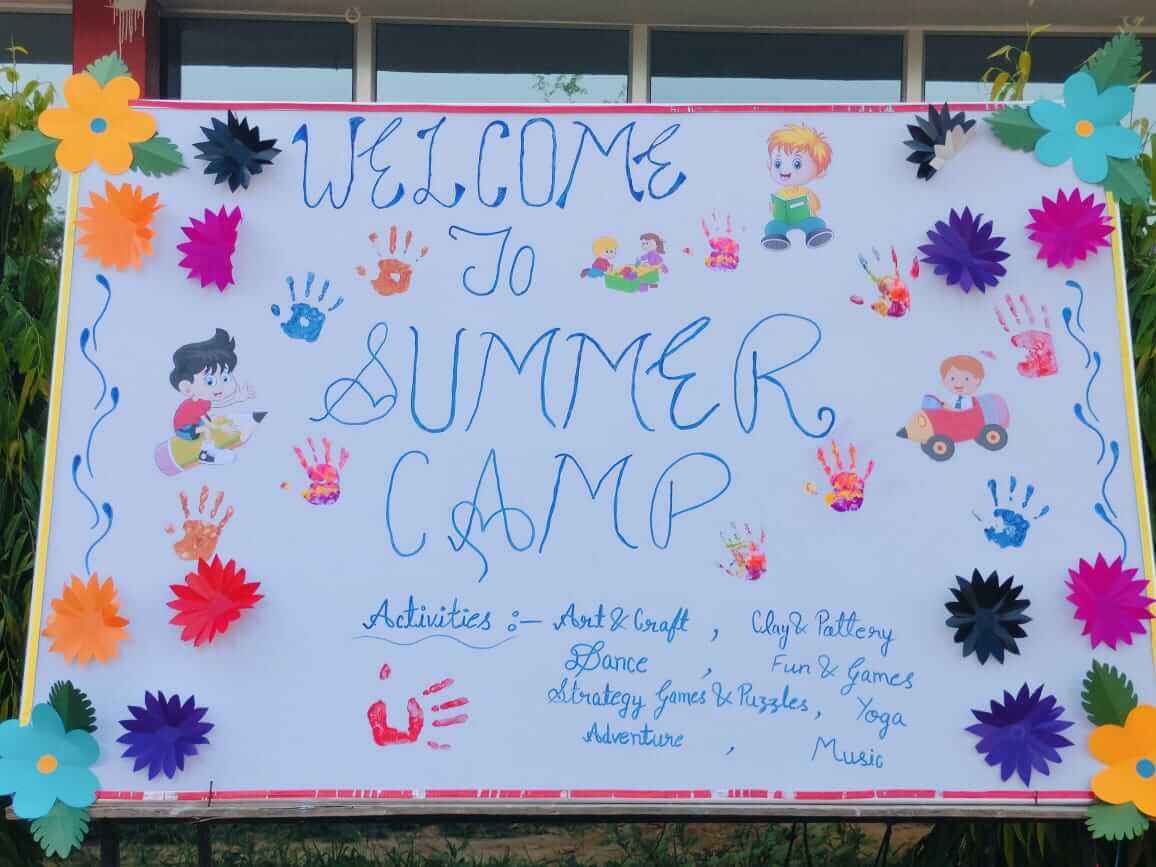 WELCOME
TO
SUMMER
CAMP
Activities :- Art & Craft , Clay & Pottery
Dance , Fun & Games
Strategy Games & Puzzles, Yoga
Adventure , Music